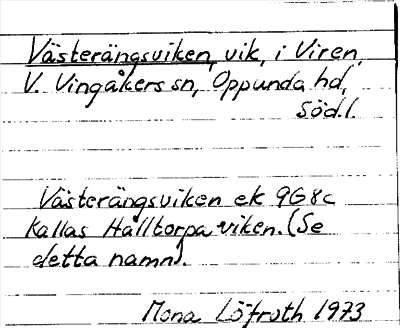 Västerängsviken, vik, i Viren,
V. Vingåkers sn, Oppunda hd,
Söd.l.
Västerängsviken ek 9G8c
kallas Hålltorpaviken. (Se
detta namn).
Mona Löfroth 1973